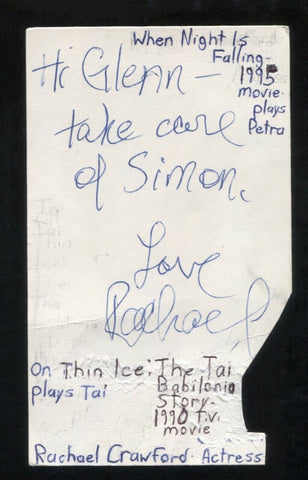 When Night Is
Falling-
1995
movie-
plays
Petra
Hi Glenn -
take care
of Simon.
Love
Rachael
On Thin Ice: The Tai
Babilonia
plays Tai
Story-
1990 T.V.
movie
Rachael Crawford - Actress